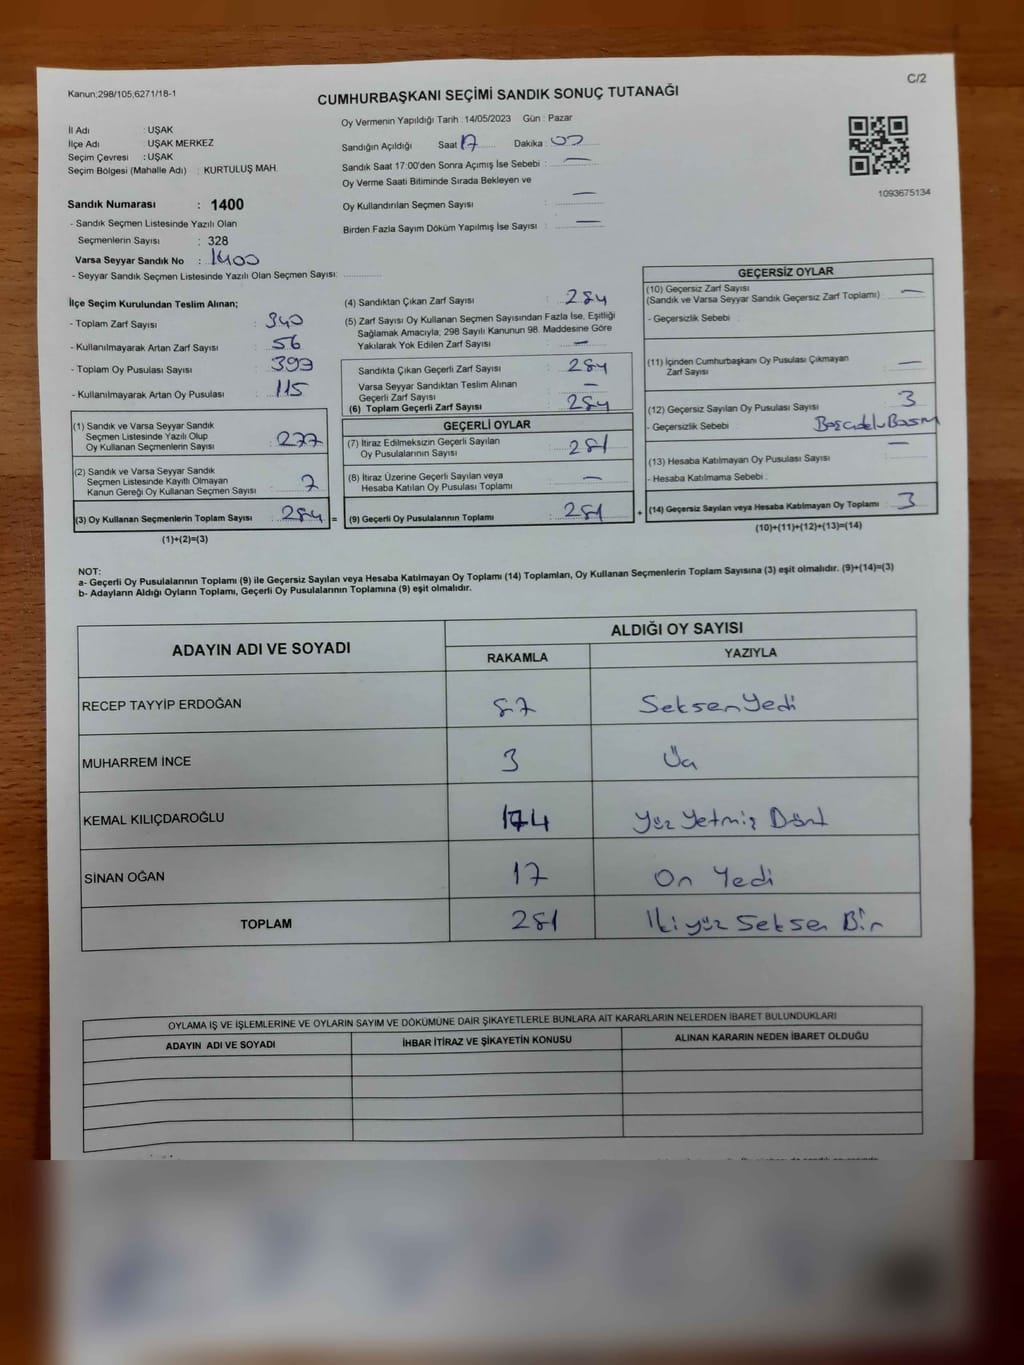 Kanun:298/105;6271/18-1
C/2
CUMHURBAŞKANI SEÇİMİ SANDIK SONUÇ TUTANAĞI
İl Adı : UŞAK
İlçe Adı : UŞAK MERKEZ
Seçim Çevresi : UŞAK
Seçim Bölgesi (Mahalle Adı) : KURTULUŞ MAH.
Oy Vermenin Yapıldığı Tarih : 14/05/2023 Gün : Pazar
Sandığın Açıldığı Saat 17 Dakika : 00
Sandık Saat 17:00'den Sonra Açımış İse Sebebi : —
Oy Verme Saati Bitiminde Sırada Bekleyen ve
Oy Kullandırılan Seçmen Sayısı : —
Birden Fazla Sayım Döküm Yapılmış İse Sayısı : —
1093675134
Sandık Numarası : 1400
- Sandık Seçmen Listesinde Yazılı Olan
Seçmenlerin Sayısı : 328
Varsa Seyyar Sandık No : 1400
- Seyyar Sandık Seçmen Listesinde Yazılı Olan Seçmen Sayısı:
İlçe Seçim Kurulundan Teslim Alınan;
- Toplam Zarf Sayısı : 340
- Kullanılmayarak Artan Zarf Sayısı : 56
- Toplam Oy Pusulası Sayısı : 399
- Kullanılmayarak Artan Oy Pusulası : 115
(1) Sandık ve Varsa Seyyar Sandık
Seçmen Listesinde Yazılı Olup
Oy Kullanan Seçmenlerin Sayısı : 277
(2) Sandık ve Varsa Seyyar Sandık
Seçmen Listesinde Kayıtlı Olmayan
Kanun Gereği Oy Kullanan Seçmen Sayısı : 7
(3) Oy Kullanan Seçmenlerin Toplam Sayısı : 284 =
(1)+(2)=(3)
(4) Sandıktan Çıkan Zarf Sayısı : 284
(5) Zarf Sayısı Oy Kullanan Seçmen Sayısından Fazla İse, Eşitliği
Sağlamak Amacıyla, 298 Sayılı Kanunun 98. Maddesine Göre
Yakılarak Yok Edilen Zarf Sayısı : —
Sandıkta Çıkan Geçerli Zarf Sayısı : 284
Varsa Seyyar Sandıktan Teslim Alınan
Geçerli Zarf Sayısı : —
(6) Toplam Geçerli Zarf Sayısı : 284
GEÇERLİ OYLAR
(7) İtiraz Edilmeksizin Geçerli Sayılan
Oy Pusulalarının Sayısı : 281
(8) İtiraz Üzerine Geçerli Sayılan veya
Hesaba Katılan Oy Pusulası Toplamı : —
(9) Geçerli Oy Pusulalarının Toplamı : 281 +
GEÇERSİZ OYLAR
(10) Geçersiz Zarf Sayısı
(Sandık ve Varsa Seyyar Sandık Geçersiz Zarf Toplamı) : —
- Geçersizlik Sebebi :
(11) İçinden Cumhurbaşkanı Oy Pusulası Çıkmayan
Zarf Sayısı : —
(12) Geçersiz Sayılan Oy Pusulası Sayısı : 3
- Geçersizlik Sebebi :
(13) Hesaba Katılmayan Oy Pusulası Sayısı : —
- Hesaba Katılmama Sebebi :
(14) Geçersiz Sayılan veya Hesaba Katılmayan Oy Toplamı : 3
(10)+(11)+(12)+(13)=(14)
NOT:
a- Geçerli Oy Pusulalarının Toplamı (9) ile Geçersiz Sayılan veya Hesaba Katılmayan Oy Toplamı (14) Toplamları, Oy Kullanan Seçmenlerin Toplam Sayısına (3) eşit olmalıdır. (9)+(14)=(3)
b- Adayların Aldığı Oyların Toplamı, Geçerli Oy Pusulalarının Toplamına (9) eşit olmalıdır.
ADAYIN ADI VE SOYADI
ALDIĞI OY SAYISI
RAKAMLA YAZIYLA
RECEP TAYYİP ERDOĞAN 87 Seksen Yedi
MUHARREM İNCE 3 Üç
KEMAL KILIÇDAROĞLU 174 Yüz Yetmiş Dört
SİNAN OĞAN 17 On Yedi
TOPLAM 281 İki yüz Seksen Bir
OYLAMA İŞ VE İŞLEMLERİNE VE OYLARIN SAYIM VE DÖKÜMÜNE DAİR ŞİKAYETLERLE BUNLARA AİT KARARLARIN NELERDEN İBARET BULUNDUKLARI
ADAYIN ADI VE SOYADI İHBAR İTİRAZ VE ŞİKAYETİN KONUSU ALINAN KARARIN NEDEN İBARET OLDUĞU